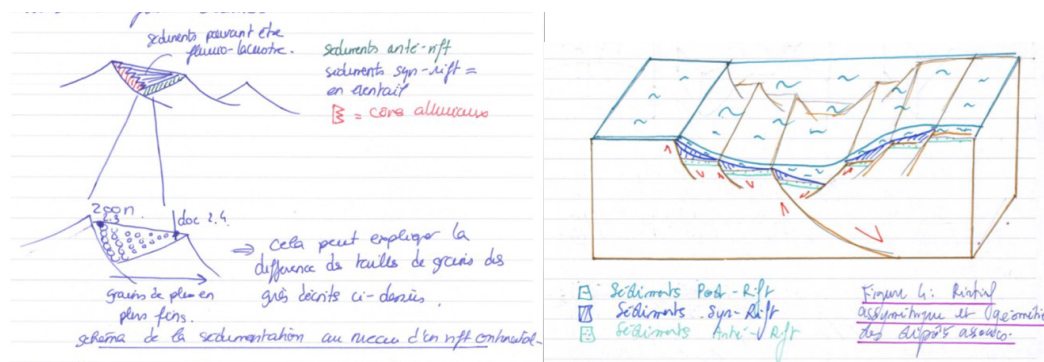 sédiments pouvant être
fluvio-lacustre.
sédiments anté-rift
sédiments syn-rift =
en éventail
= cône alluviaux
zoom
doc 2.4.
2.3
⇒ cela peut expliquer la
différence de tailles de grains des
grès décrits ci-dessus.
grains de plus en
plus fins.
schéma de la sédimentation au niveau d'un rift continental
Sédiments Post-Rift
Sédiments Syn-Rift
Sédiments Anté-Rift
Figure 4: Rifting
assymétrique et géométrie
des dépôts associés.